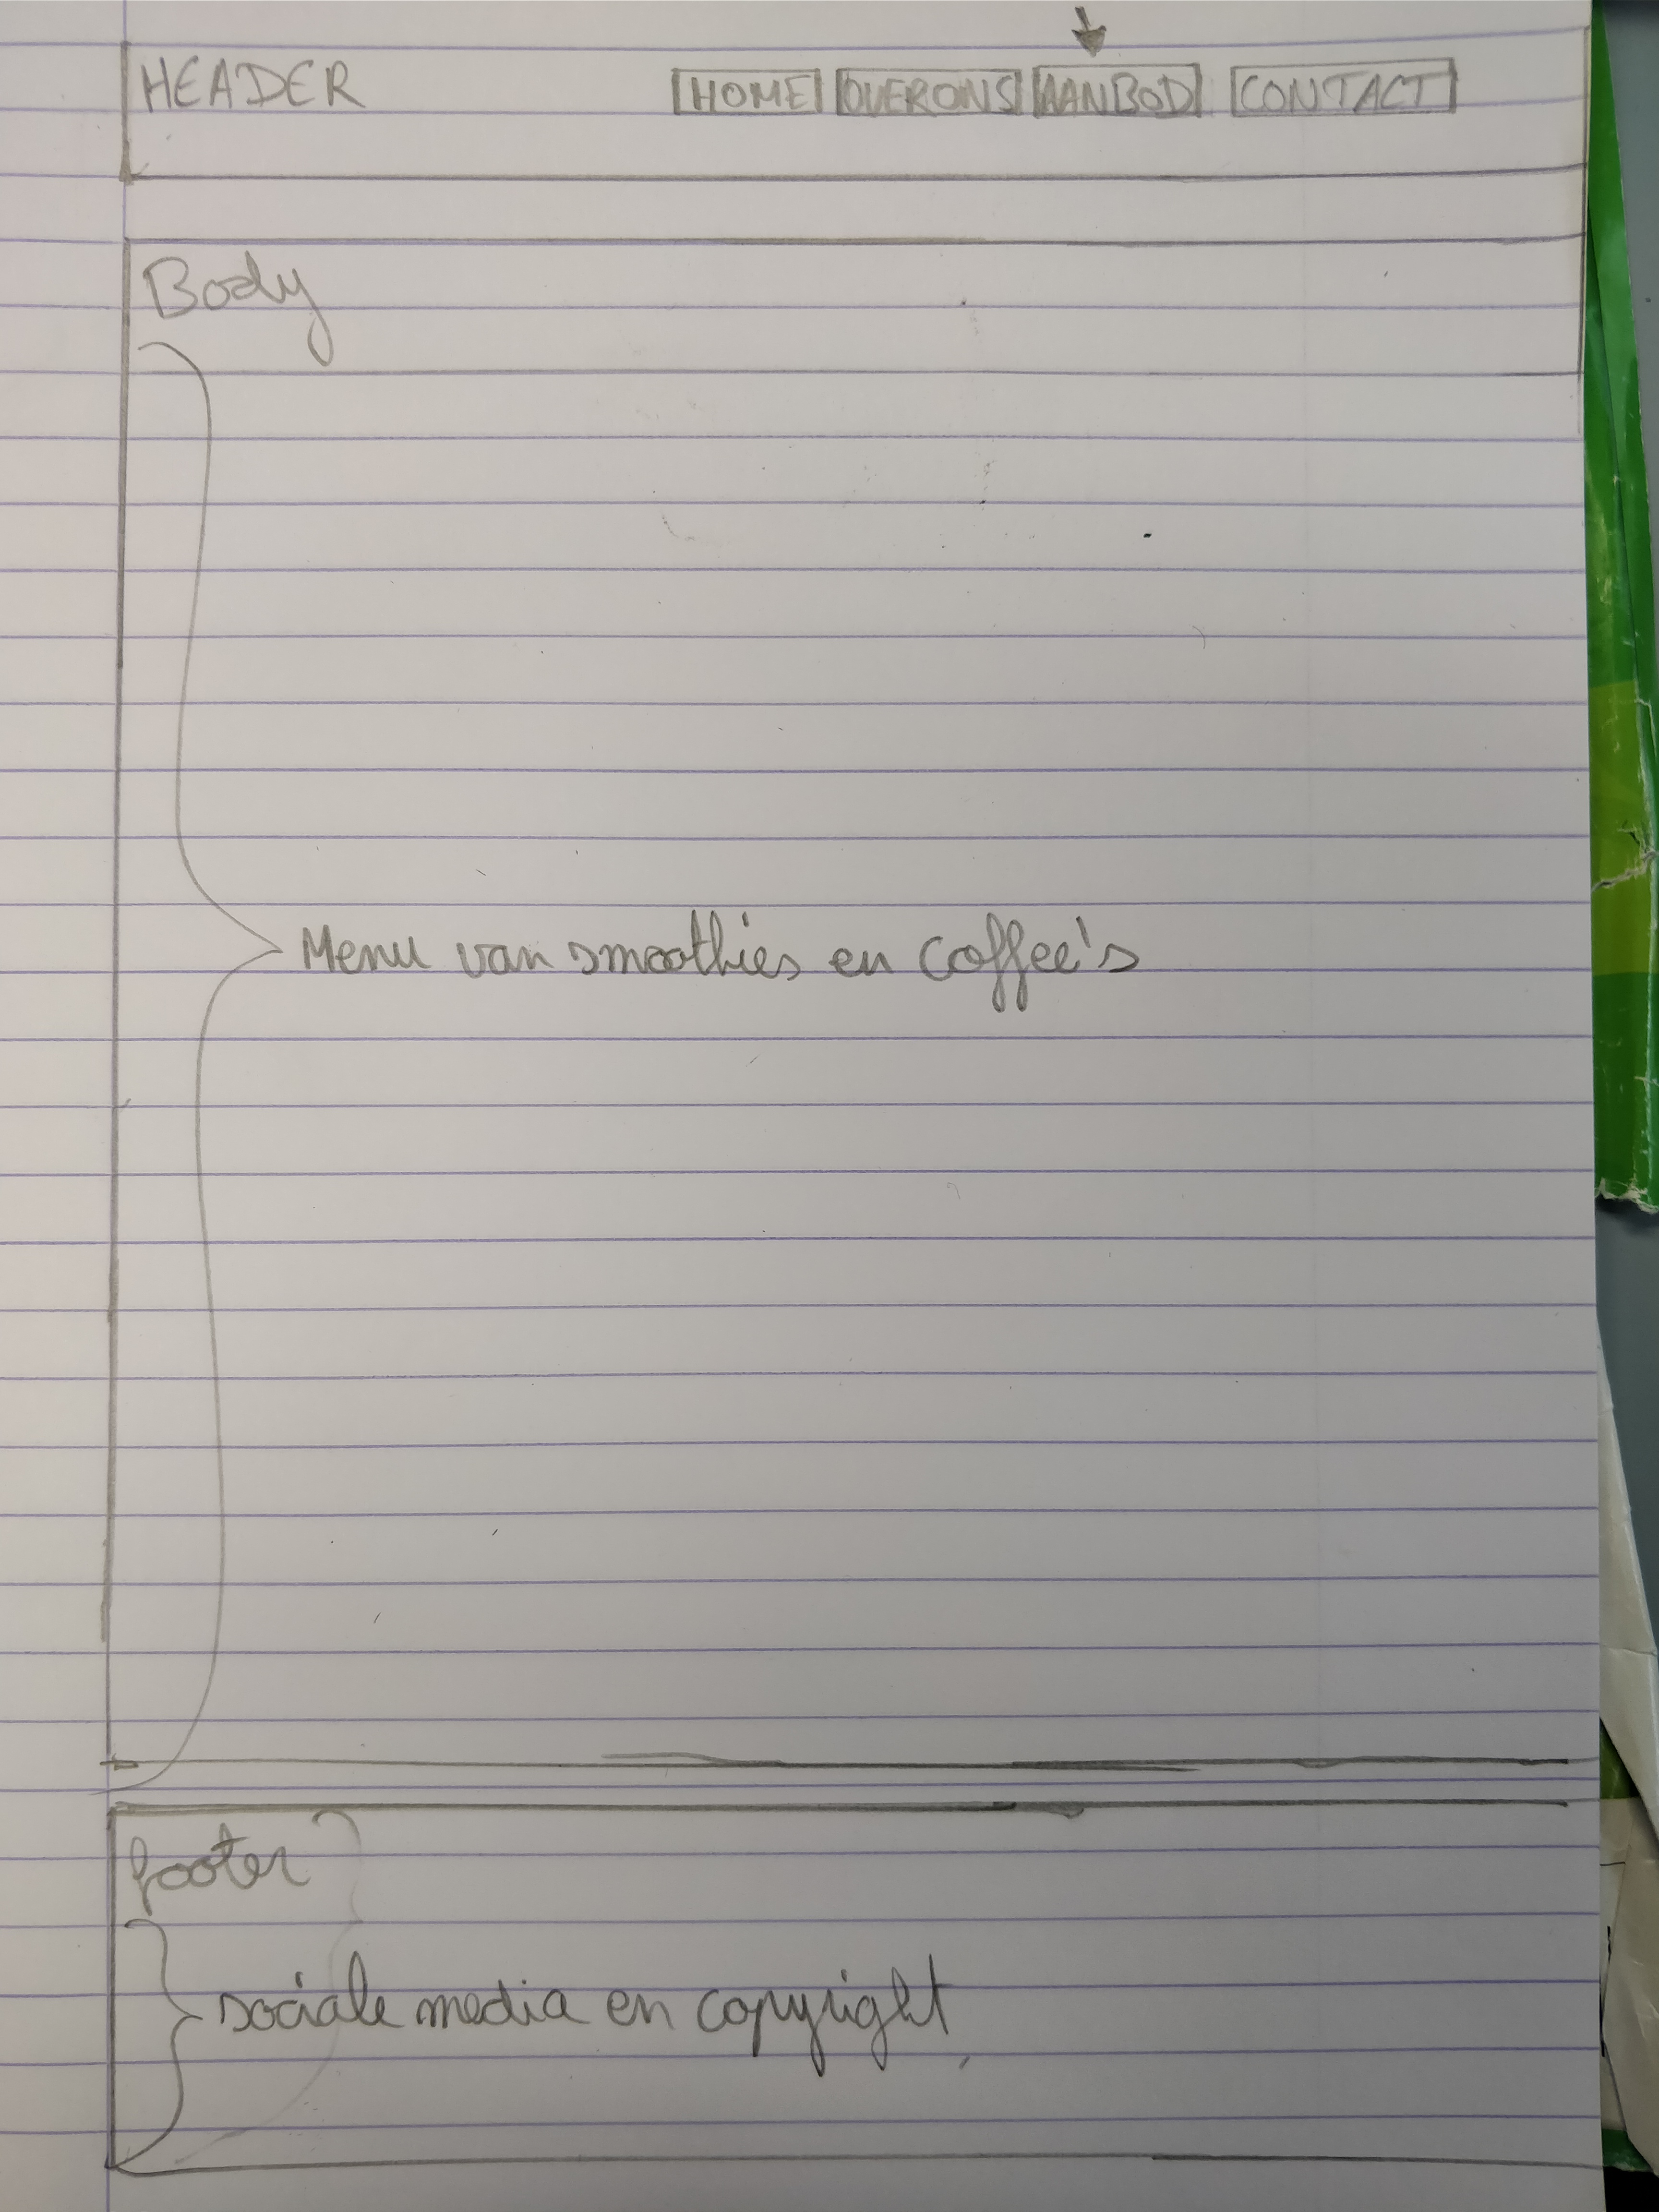 HEADER HOME OVERONS AANBOD CONTACT
Body
Menu van smoothies en coffee's
footer
sociale media en copyright